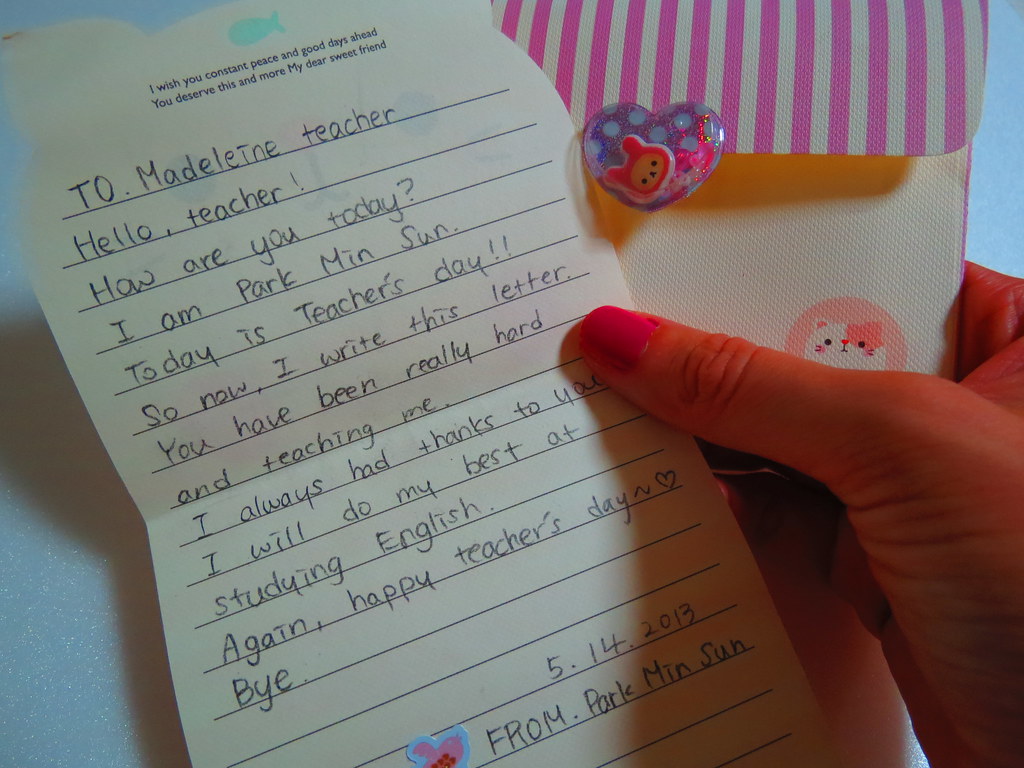 I wish you constant peace and good days ahead
You deserve this and more My dear sweet friend
TO. Madeleine teacher
Hello, teacher!
How are you today?
I am Park Min Sun.
Today is Teacher's day!!
So now, I write this letter.
You have been really hard
and teaching me.
I always had thanks to you
I will do my best at
studying English.
Again, happy teacher's day~♡
Bye.
5.14.2013
FROM. Park Min Sun